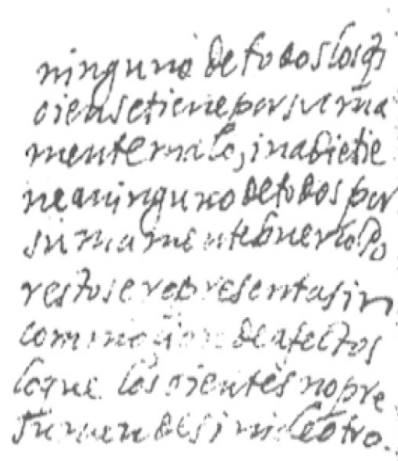 ninguno de todos los q̃
oien se tiene por suma
mente malo, i nadie tie
ne a ninguno de todos por
sumamente bueno Po
resto se representa sin
comocion de afectos
lo que los oientes no pre
sumen de si ni de otro.